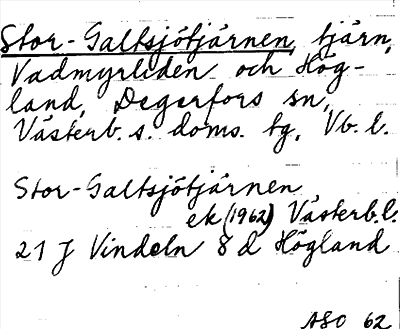 Stor-Galtsjötjärnen, tjärn,
Vadmyrliden och Hög-
land, Degerfors sn,
Västerb. s. doms. tg, Vb. l.
Stor-Galtsjötjärnen
ek (1962) Västerb. l.
21 J Vindeln 8 d Högland
ASO 62